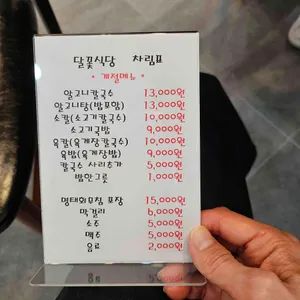 달꽃식당 차림표
* 계절메뉴 *
알고니칼국수 13,000원
알고니탕(밥포함) 13,000원
소칼(소고기칼국수) 10,000원
소고기국밥 9,000원
육칼(육개장칼국수) 10,000원
육밥(육개장밥) 9,000원
칼국수 사리추가 5,000원
밥한그릇 1,000원
명태회무침 포장 15,000원
막걸리 6,000원
소주 5,000원
맥주 5,000원
음료 2,000원